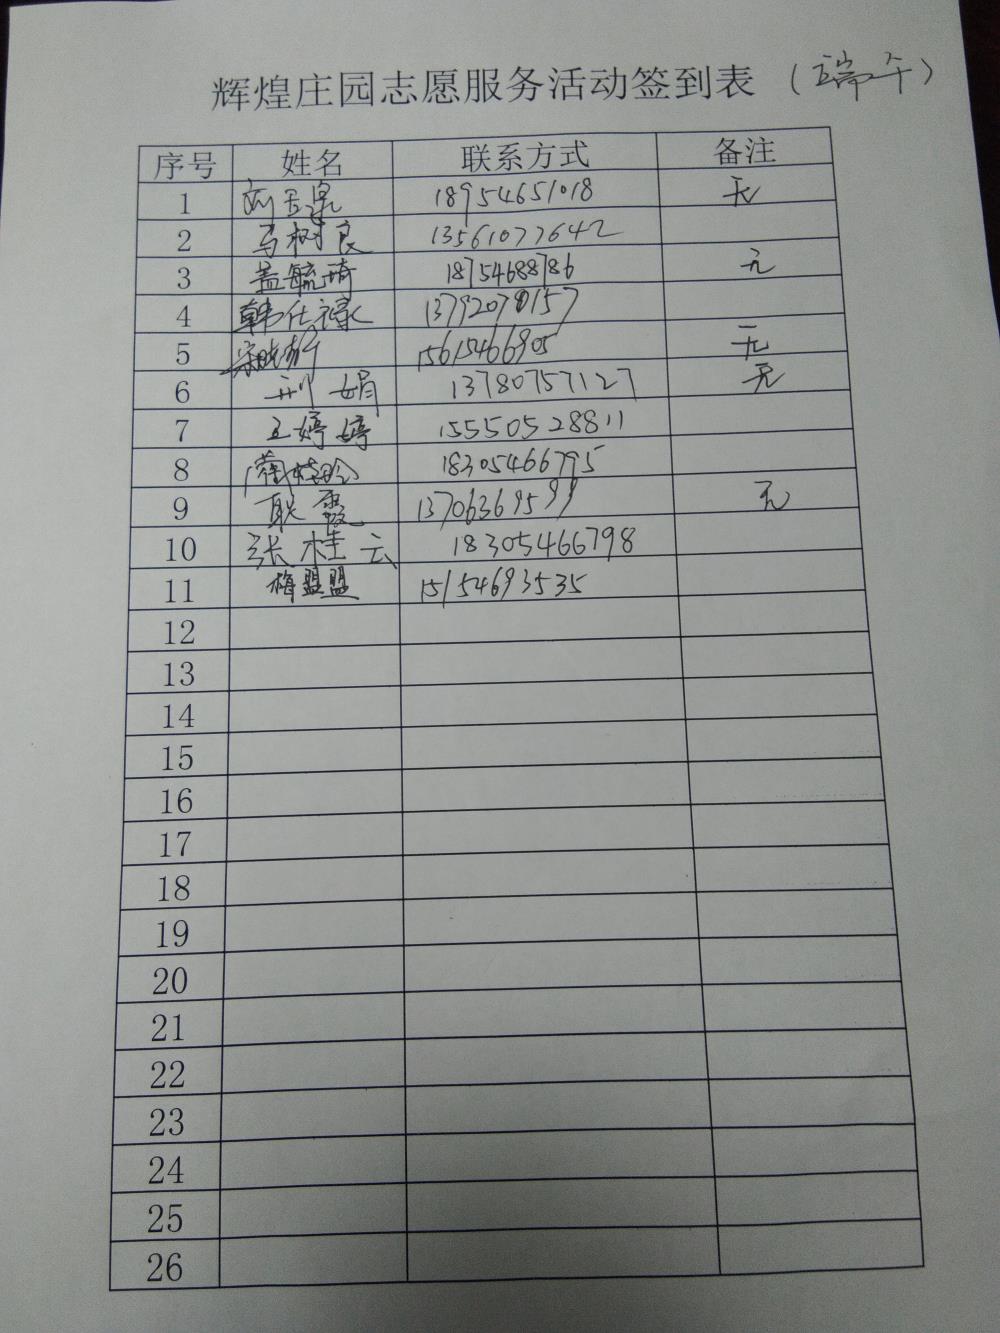 辉煌庄园志愿服务活动签到表 (端午)
序号 姓名 联系方式 备注
1 刘玉泉 18954651018 无
2 马树良 13561077642
3 盖毓琦 18754688786 无
4 韩仕禄 13792070157
5 15615466905 无
6 刑娟 13780757127 无
7 王婷婷 15550528811
8 18305466795
9 耿霞 13706369599 无
10 张桂云 18305466798
11 梅盟盟 15154693535
12
13
14
15
16
17
18
19
20
21
22
23
24
25
26